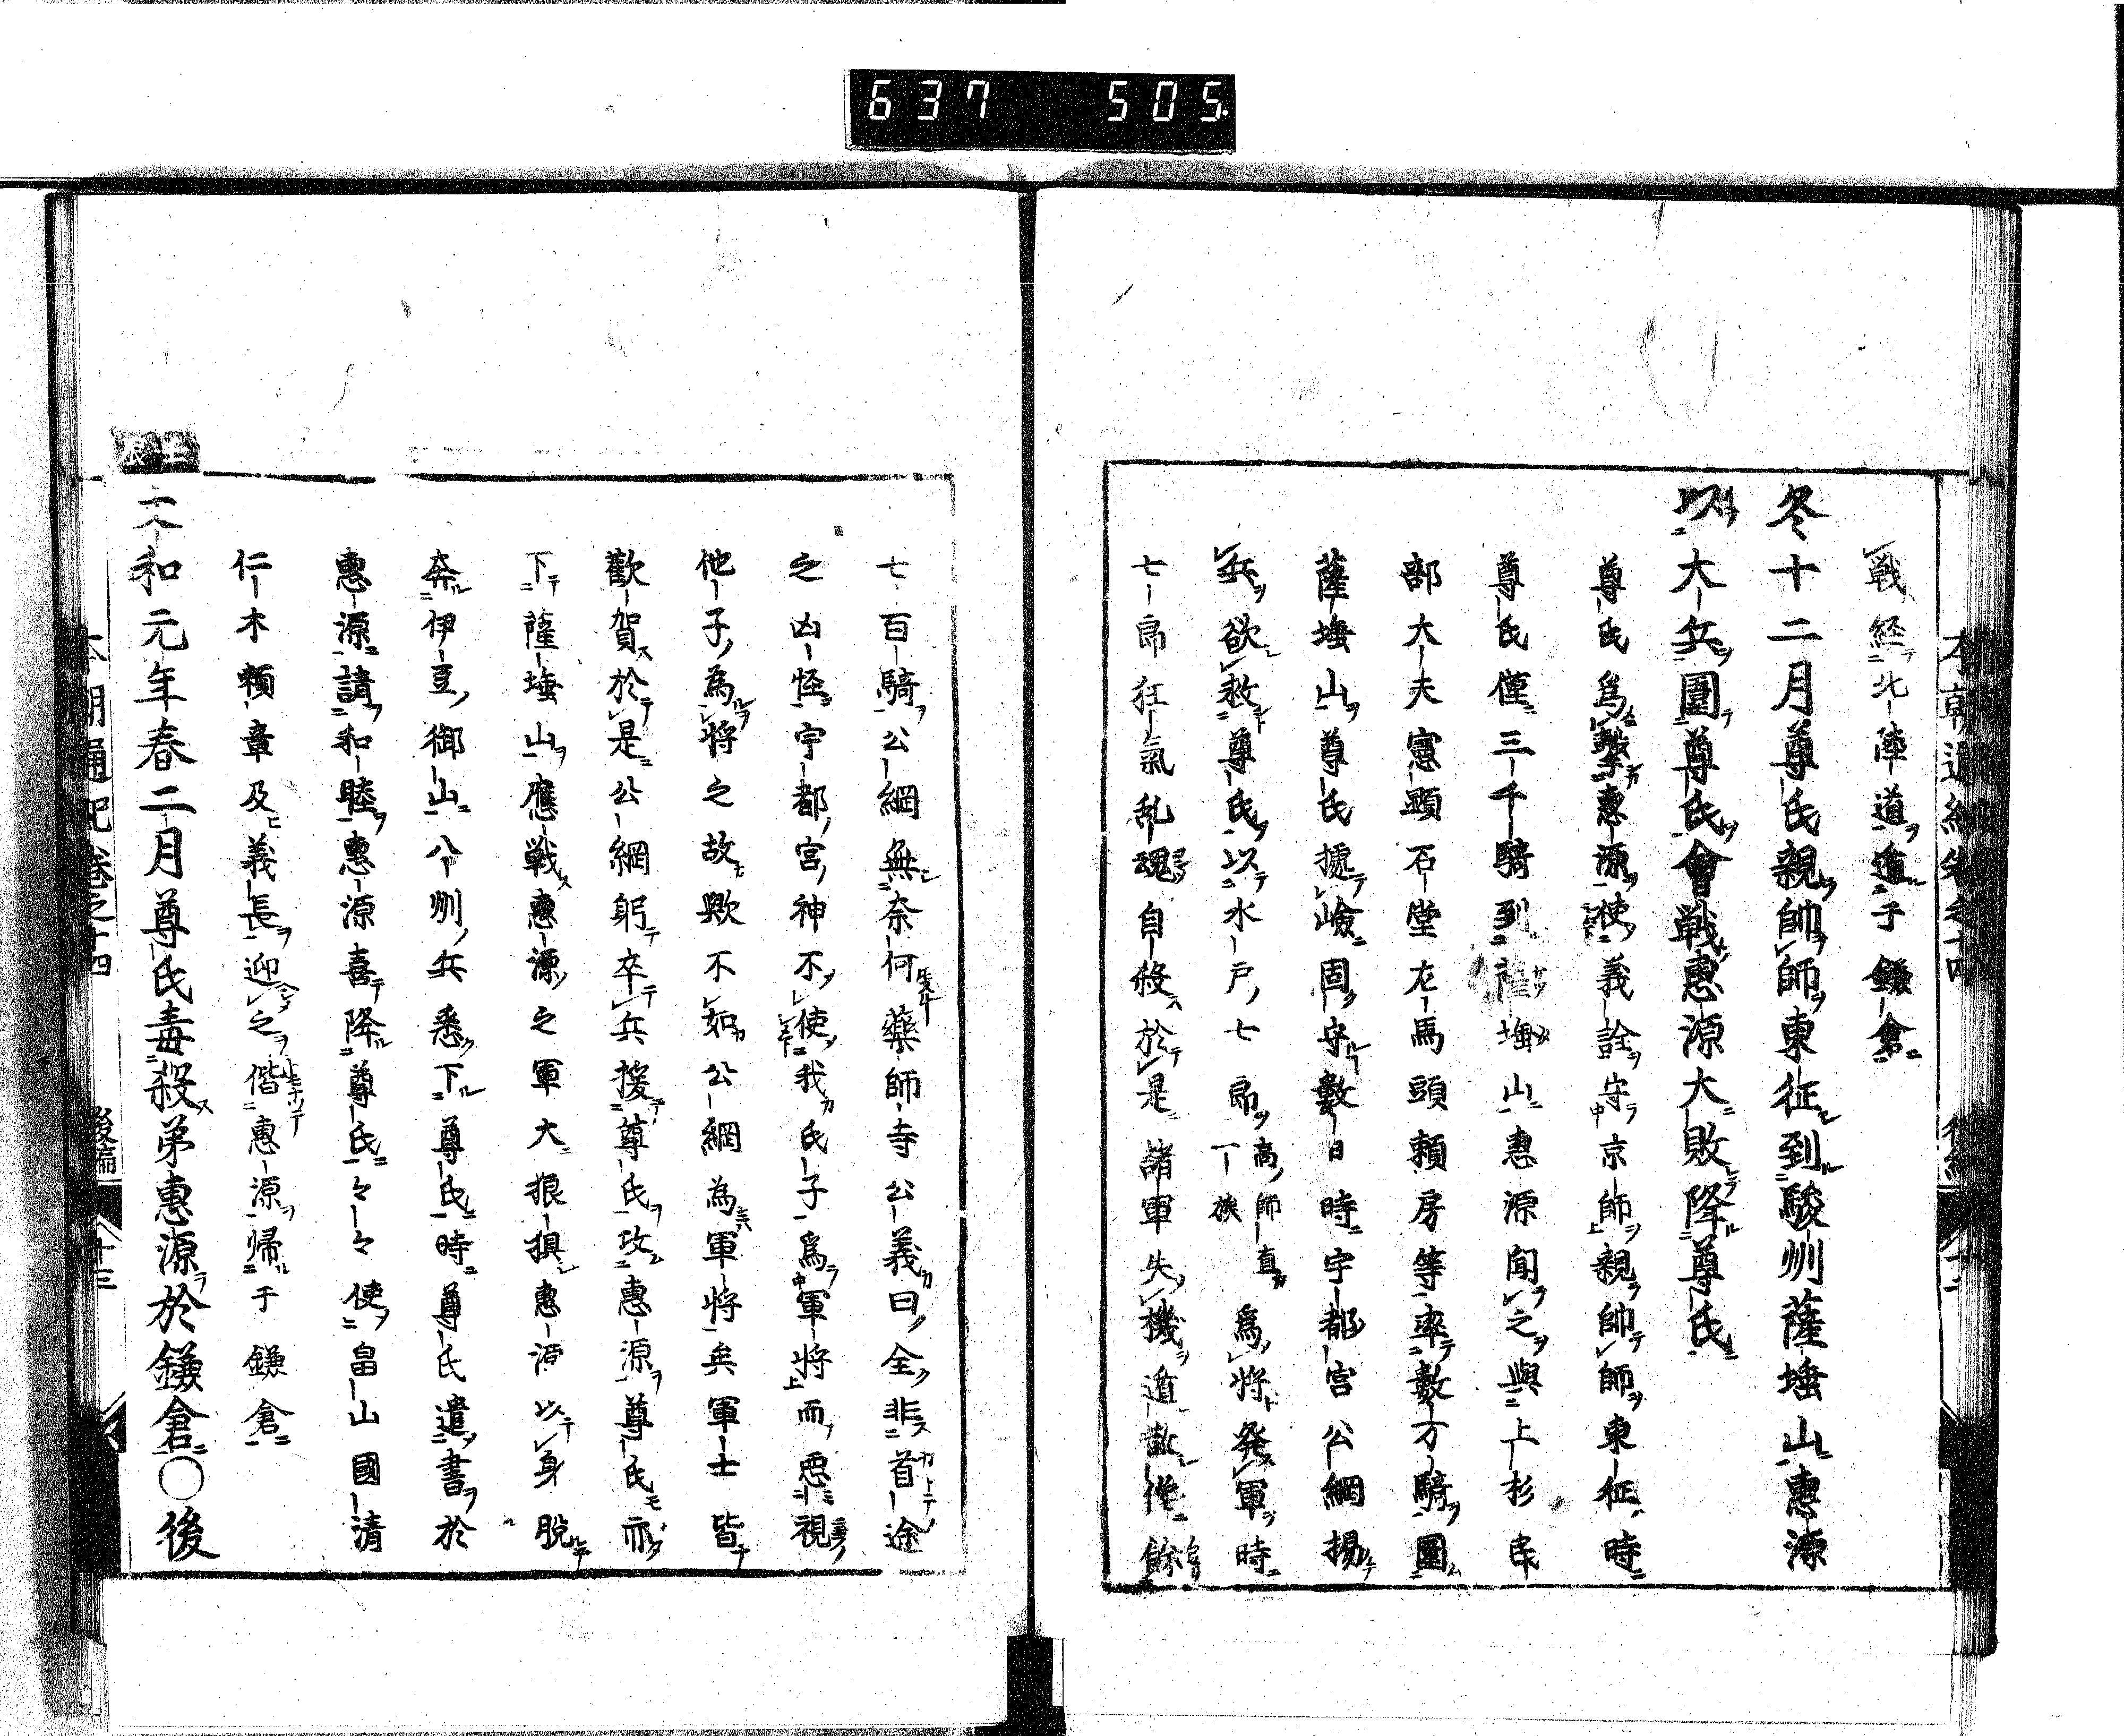 637 505.
戦経北陸道遁于鎌倉
冬十二月尊氏親帥師東征到駿州薩埵山惠源
以大兵圍尊氏會戦惠源大敗降尊氏
尊氏爲撃惠源使義詮守京師親帥師東征時
尊氏僅三千騎到薩埵山惠源聞之與上杉民
部大夫憲顕石堂左馬頭頼房等率數万騎圍
薩埵山尊氏據嶮固守數日時宇都宮公綱揚
兵欲救尊氏以水戸七郎高師直一族爲將発軍時
七郎狂氣乱魂自殺於是諸軍失機遁散僅餘
七百騎公綱無奈何藥師寺公義曰全非首途
之凶怪宇都宮神不使我氏子爲軍将而悪視
他子為将之故歟不如公綱為軍将矣軍士皆
歡賀於是公綱躬卒兵援尊氏攻惠源尊氏亦
下薩埵山應戦惠源之軍大狼狽惠源以身脱
奔伊豆御山八州兵悉下尊氏時尊氏遣書於
惠源請和睦惠源喜降尊氏々々使畠山國清
仁木頼章及義長迎之偕惠源帰于鎌倉
壬辰
文和元年春二月尊氏毒殺弟惠源於鎌倉○後
本朝通紀巻之十四 後編 十三